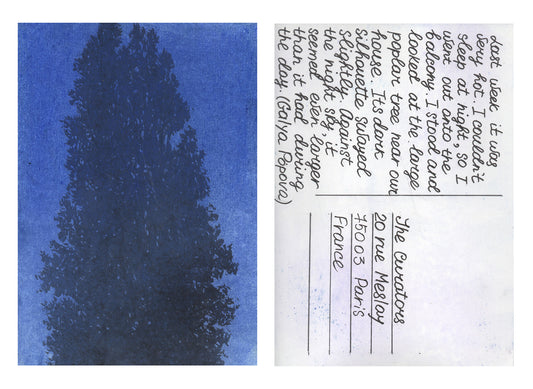 Last week it was
very hot. I couldn't
sleep at night, so I
went out onto the
balcony. I stood and
looked at the large
poplar tree near our
house. Its dark
silhouette swayed
slightly. Against
the night sky, it
seemed even larger
than it had during
the day. (Galya Popova)
The Curators
20 rue Meslay
75003 Paris
France